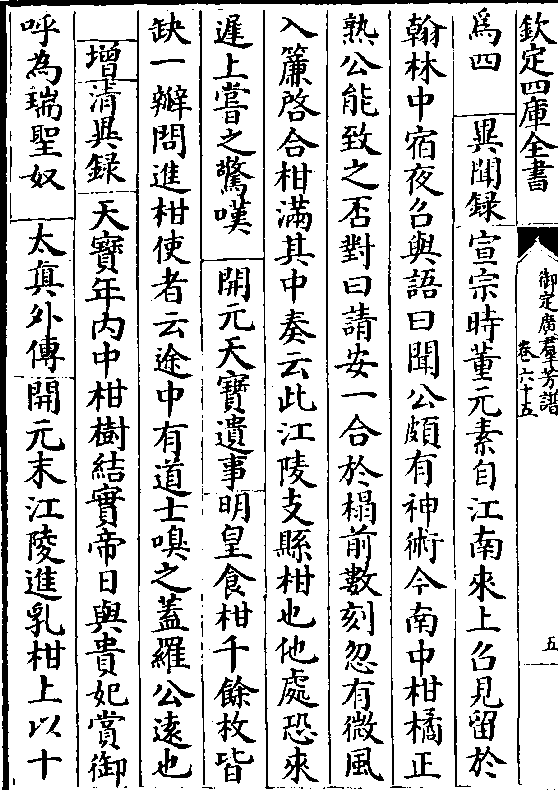 欽定四庫全書
御定廣羣芳譜
卷六十五
五
為四　異聞録宣宗時董元素自江南來上召見留於
翰林中宿夜召與語曰聞公頗有神術今南中柑橘正
熟公能致之否對曰請安一合於榻前數刻忽有微風
入簾啓合柑滿其中奏云此江陵支縣柑也他處恐來
遲上嘗之驚嘆　開元天寶遺事明皇食柑千餘枚皆
缺一瓣問進柑使者云途中有道士嗅之蓋羅公遠也
增清異録　天寶年内中柑樹結實帝日與貴妃賞御
呼為瑞聖奴　太真外傳開元末江陵進乳柑上以十